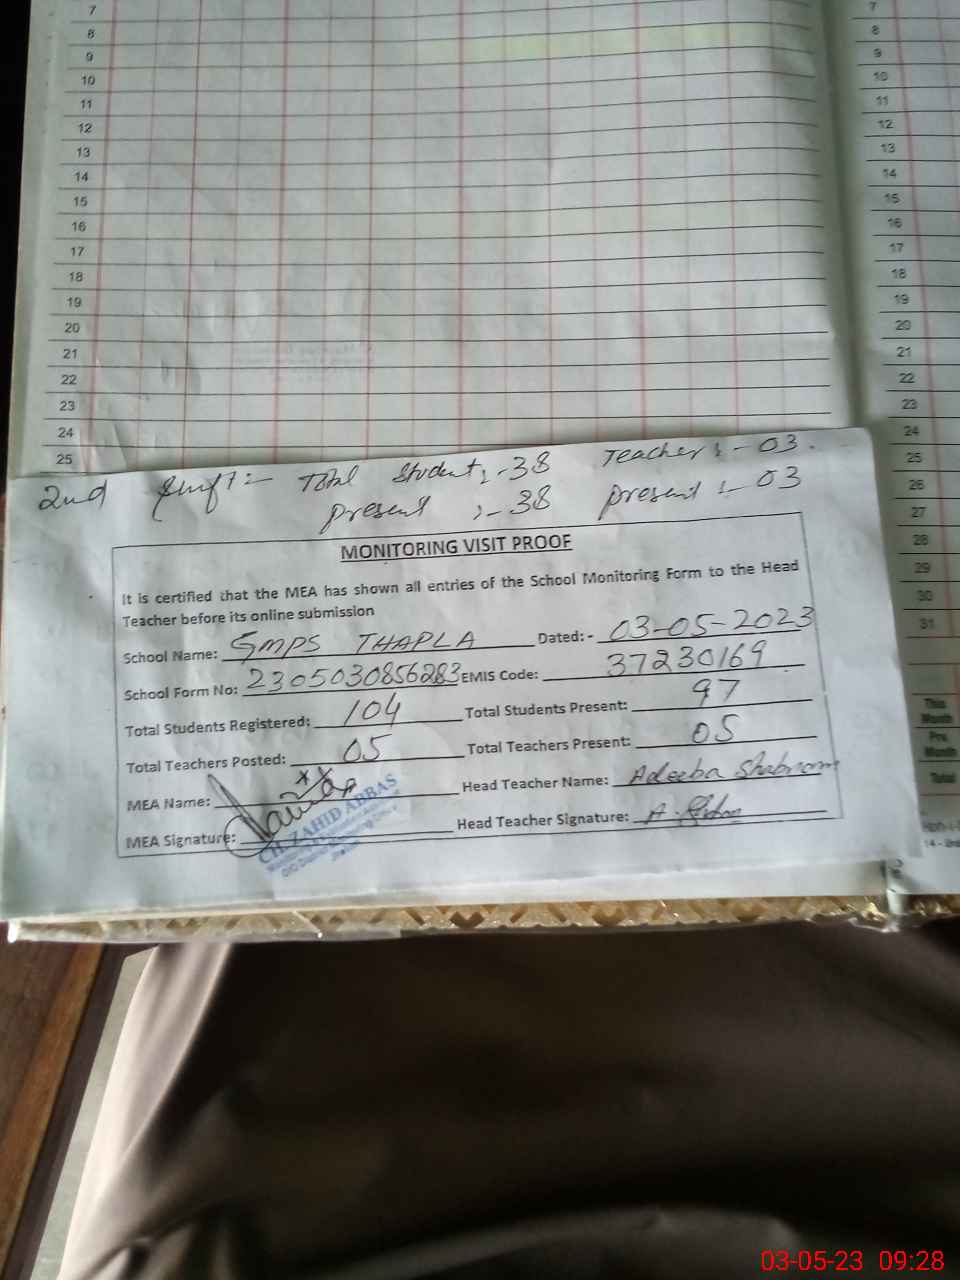 7
8
9
10
11
12
13
14
15
16
17
18
19
20
21
22
23
24
25
7
8
9
10
11
12
13
14
15
16
17
18
19
20
21
22
23
24
25
26
27
28
29
30
31
This Month
Pre Month
Total
2nd Shift:- Total Student:-38 Teacher:-03.
present :-38 present :-03
MONITORING VISIT PROOF
It is certified that the MEA has shown all entries of the School Monitoring Form to the Head
Teacher before its online submission
School Name: GMPS THAPLA Dated:- 03-05-2023
School Form No: 2305030856283 EMIS Code: 37230169
Total Students Registered: 104 Total Students Present: 97
Total Teachers Posted: 05 Total Teachers Present: 05
MEA Name: Head Teacher Name: Adeeba Shabnam
MEA Signature: Head Teacher Signature:
CH. ZAHID ABBAS
03-05-23 09:28